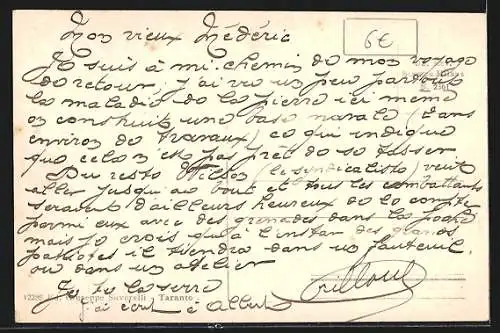 Mon vieux Médéric
6€
Je suis à mi-chemin de mon voyage
de retour, j'ai vu un peu partout
la maladie de la pierre ici meme
on construit une base navale (2 ans
environ de travaux) ce qui indique
que cela n'est pas prêt de se tasser
Du reste Wilson (le syndicaliste) veut
aller jusqu'au bout et tous les combattants
seraient d'ailleurs heureux de le compter
parmi eux avec des grenades dans la poche
mais je crois qu'à l'instar des grands
patriotes il tiendra dans un fauteuil
ou dans un atelier
Je te la serre
j'ai écrit à Albert
12298 Giuseppe Saverelli - Taranto